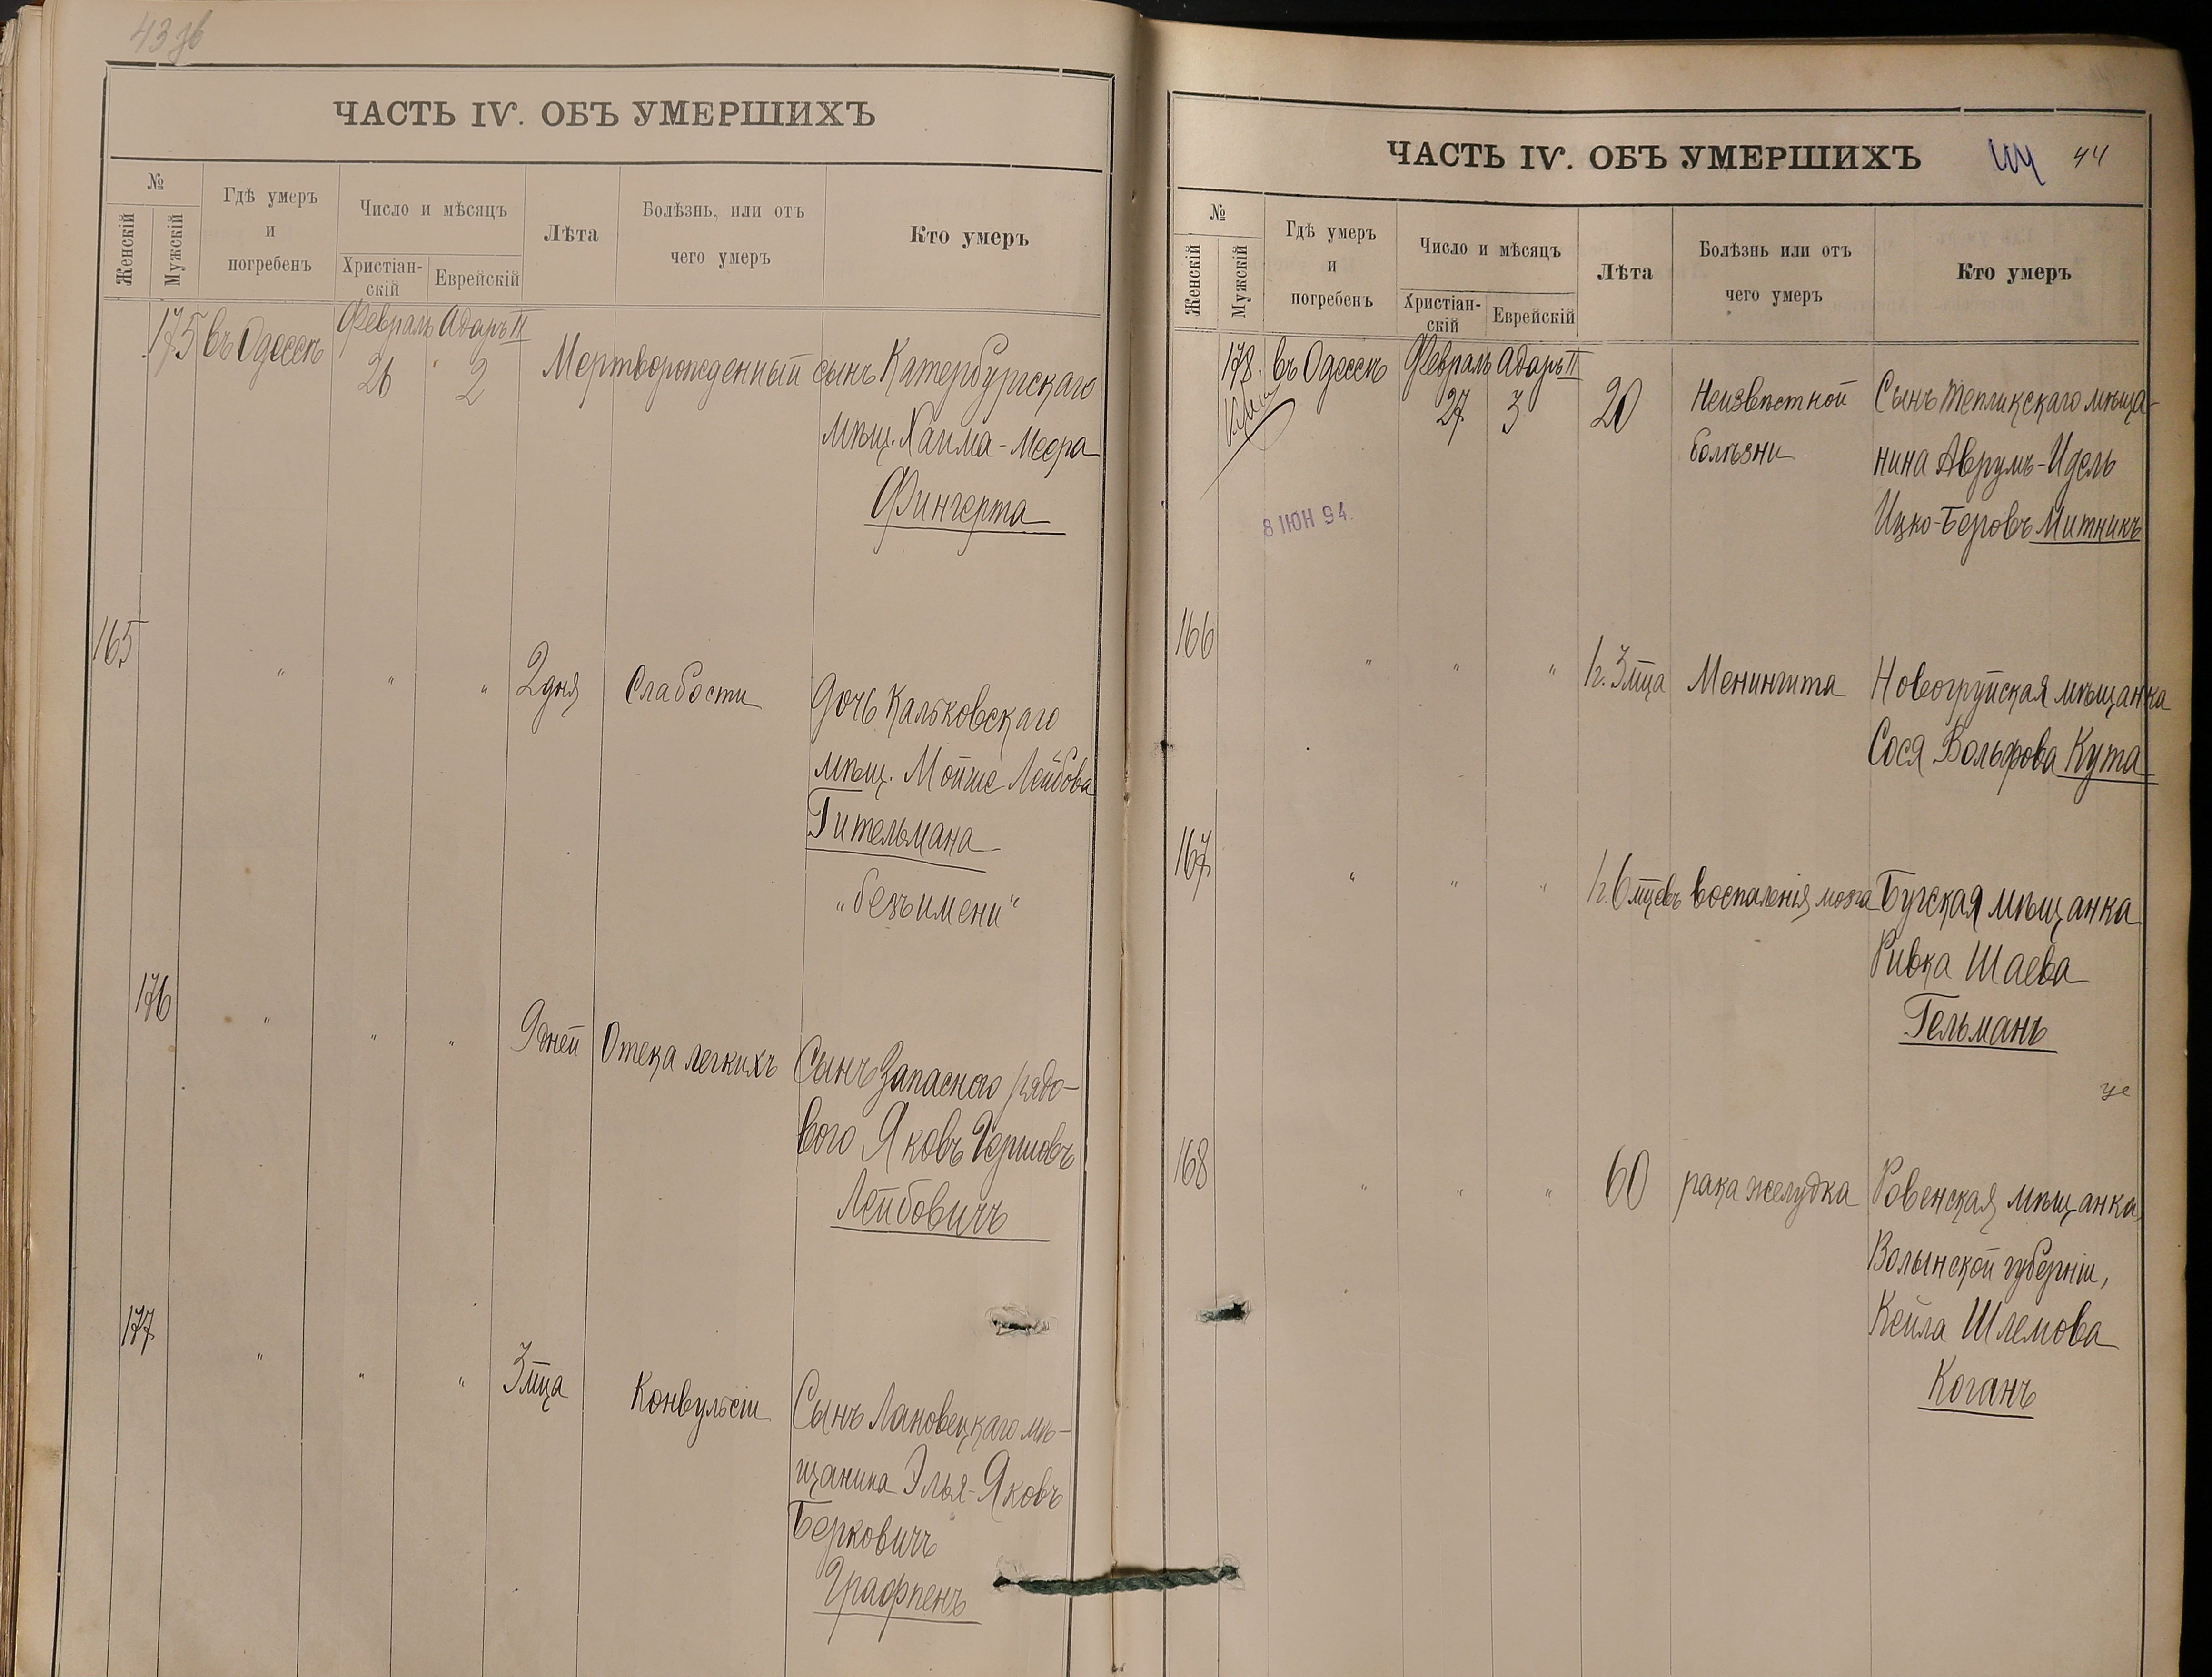 43 зв
ЧАСТЬ IV. ОБЪ УМЕРШИХЪ
№
Женскій
Мужскій
Гдѣ умеръ
и
погребенъ
Число и мѣсяцъ
Христіан-
скій
Еврейскій
Лѣта
Болѣзнь, или отъ
чего умеръ
Кто умеръ
175 въ Одессѣ Февраль Адаръ II
26 2 Мертворожденный сынъ Катербургскаго
мѣщ. Хаима-Меера
Фингерта
165 " " " 2 дня Слабости Дочь Кальковскаго
мѣщ. Мойше Лейбова
Гительмана
"безъ имени"
176 " " " 9 дней Отека легкихъ Сынъ Запасного рядо-
вого Яковъ Гершовъ
Лейбовичъ
177 " " " 3 м̅ца Конвульсіи Сынъ Лановецкаго мѣ-
щанина Элья-Яковъ
Берковичъ
Графпенъ
ЧАСТЬ IV. ОБЪ УМЕРШИХЪ 44
№
Женскій
Мужскій
Гдѣ умеръ
и
погребенъ
Число и мѣсяцъ
Христіан-
скій
Еврейскій
Лѣта
Болѣзнь или отъ
чего умеръ
Кто умеръ
178. въ Одессѣ Февраль Адаръ II
27 3 20 Неизвѣстной Сынъ Тепликскаго мѣща-
болѣзни нина Аврумъ-Идель
Ицко-Беровъ Митникъ
8 ІЮН 94.
166 " " " 1 г. 3 м̅ца Менингита Новогруйская мѣщанка
Сося Вольфова Кута
167 " " " 1 г. 6 м̅цевъ воспаленія мозга Бугская мѣщанка
Ривка Шаева
Гельманъ
168 " " " 60 рака желудка Ровенская мѣщанка,
Волынской губерніи,
Кейла Шлемова
Коганъ